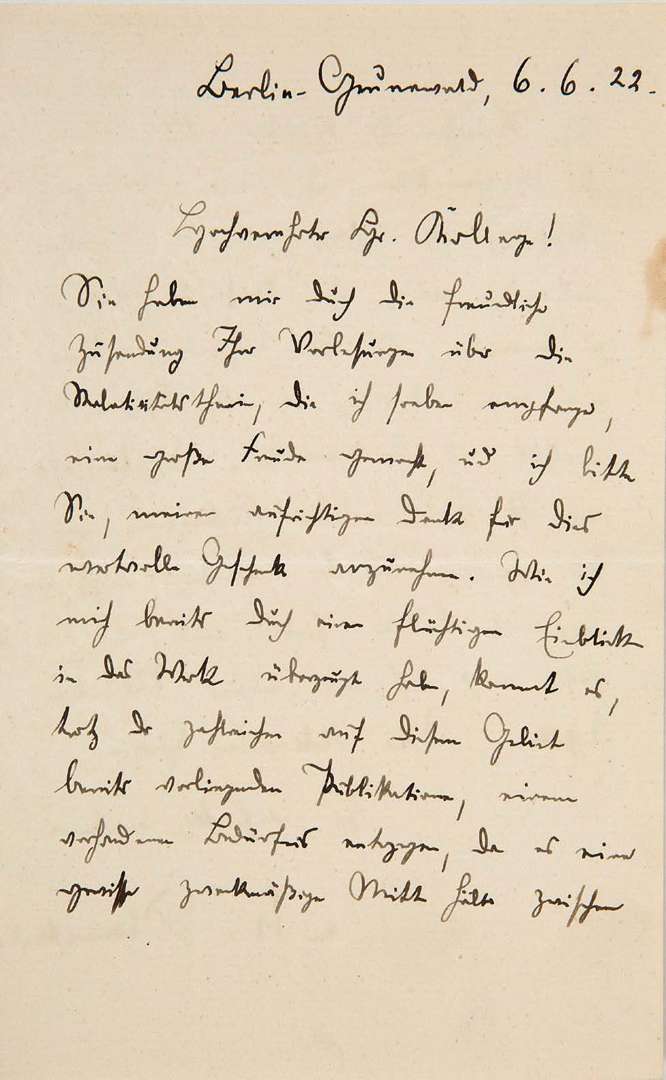 Berlin-Grunewald, 6. 6. 22.
Hochverehrter Hr. Kollege!
Sie haben mir durch die freundliche
Zusendung Ihrer Vorlesungen über die
Relativitätstheorie, die ich soeben empfange,
eine große Freude gemacht, und ich bitte
Sie, meinen aufrichtigen Dank für dies
wertvolle Geschenk anzunehmen. Wie ich
mich bereits durch einen flüchtigen Einblick
in das Werk überzeugt habe, kommt es,
trotz der zahlreichen auf diesem Gebiet
bereits vorliegenden Publikationen, einem
vorhandenen Bedürfnis entgegen, da es eine
gewisse zweckmäßige Mitte hält zwischen